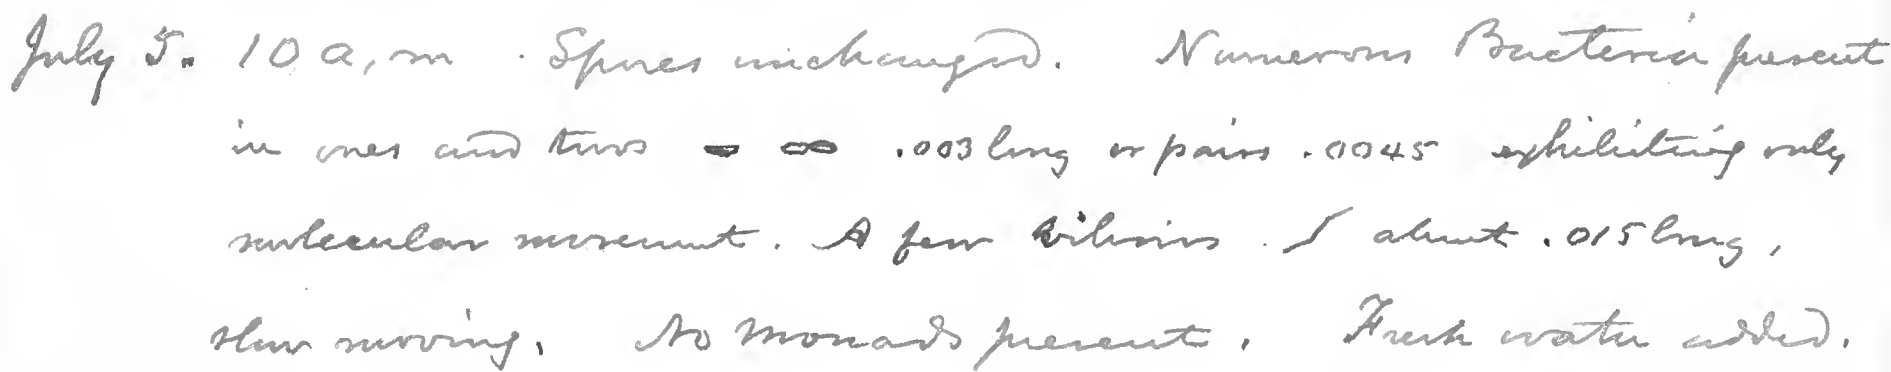 July 5. 10 a,m. Spores unchanged. Numerous Bacteria present
in ones and twos - ∞ .003 long or pairs .0045 exhibiting only
molecular movement. A few vibrios / about .015 long,
slow moving. No Monads present. Fresh water added.